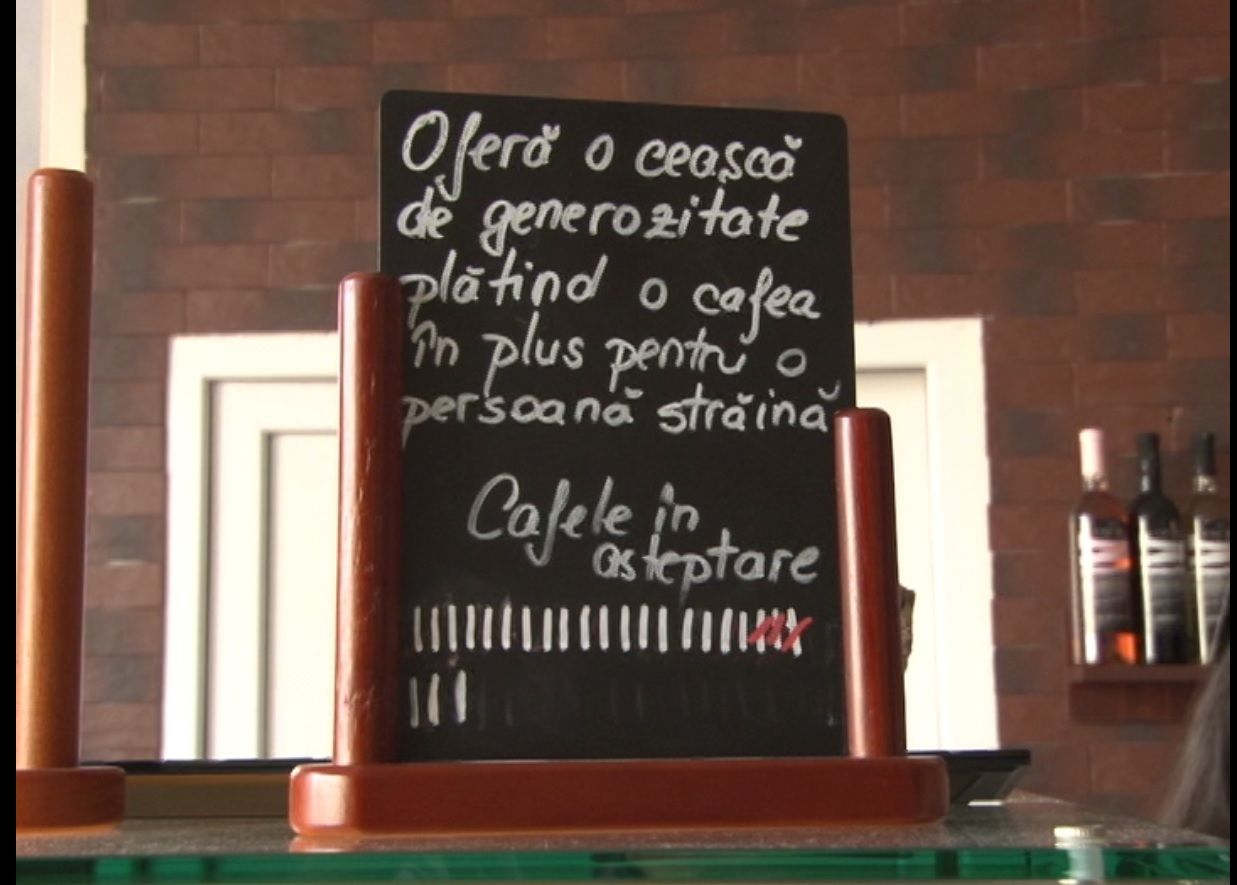 Oferă o ceașcă
de generozitate
plătind o cafea
în plus pentru o
persoană străină
Cafele în
așteptare